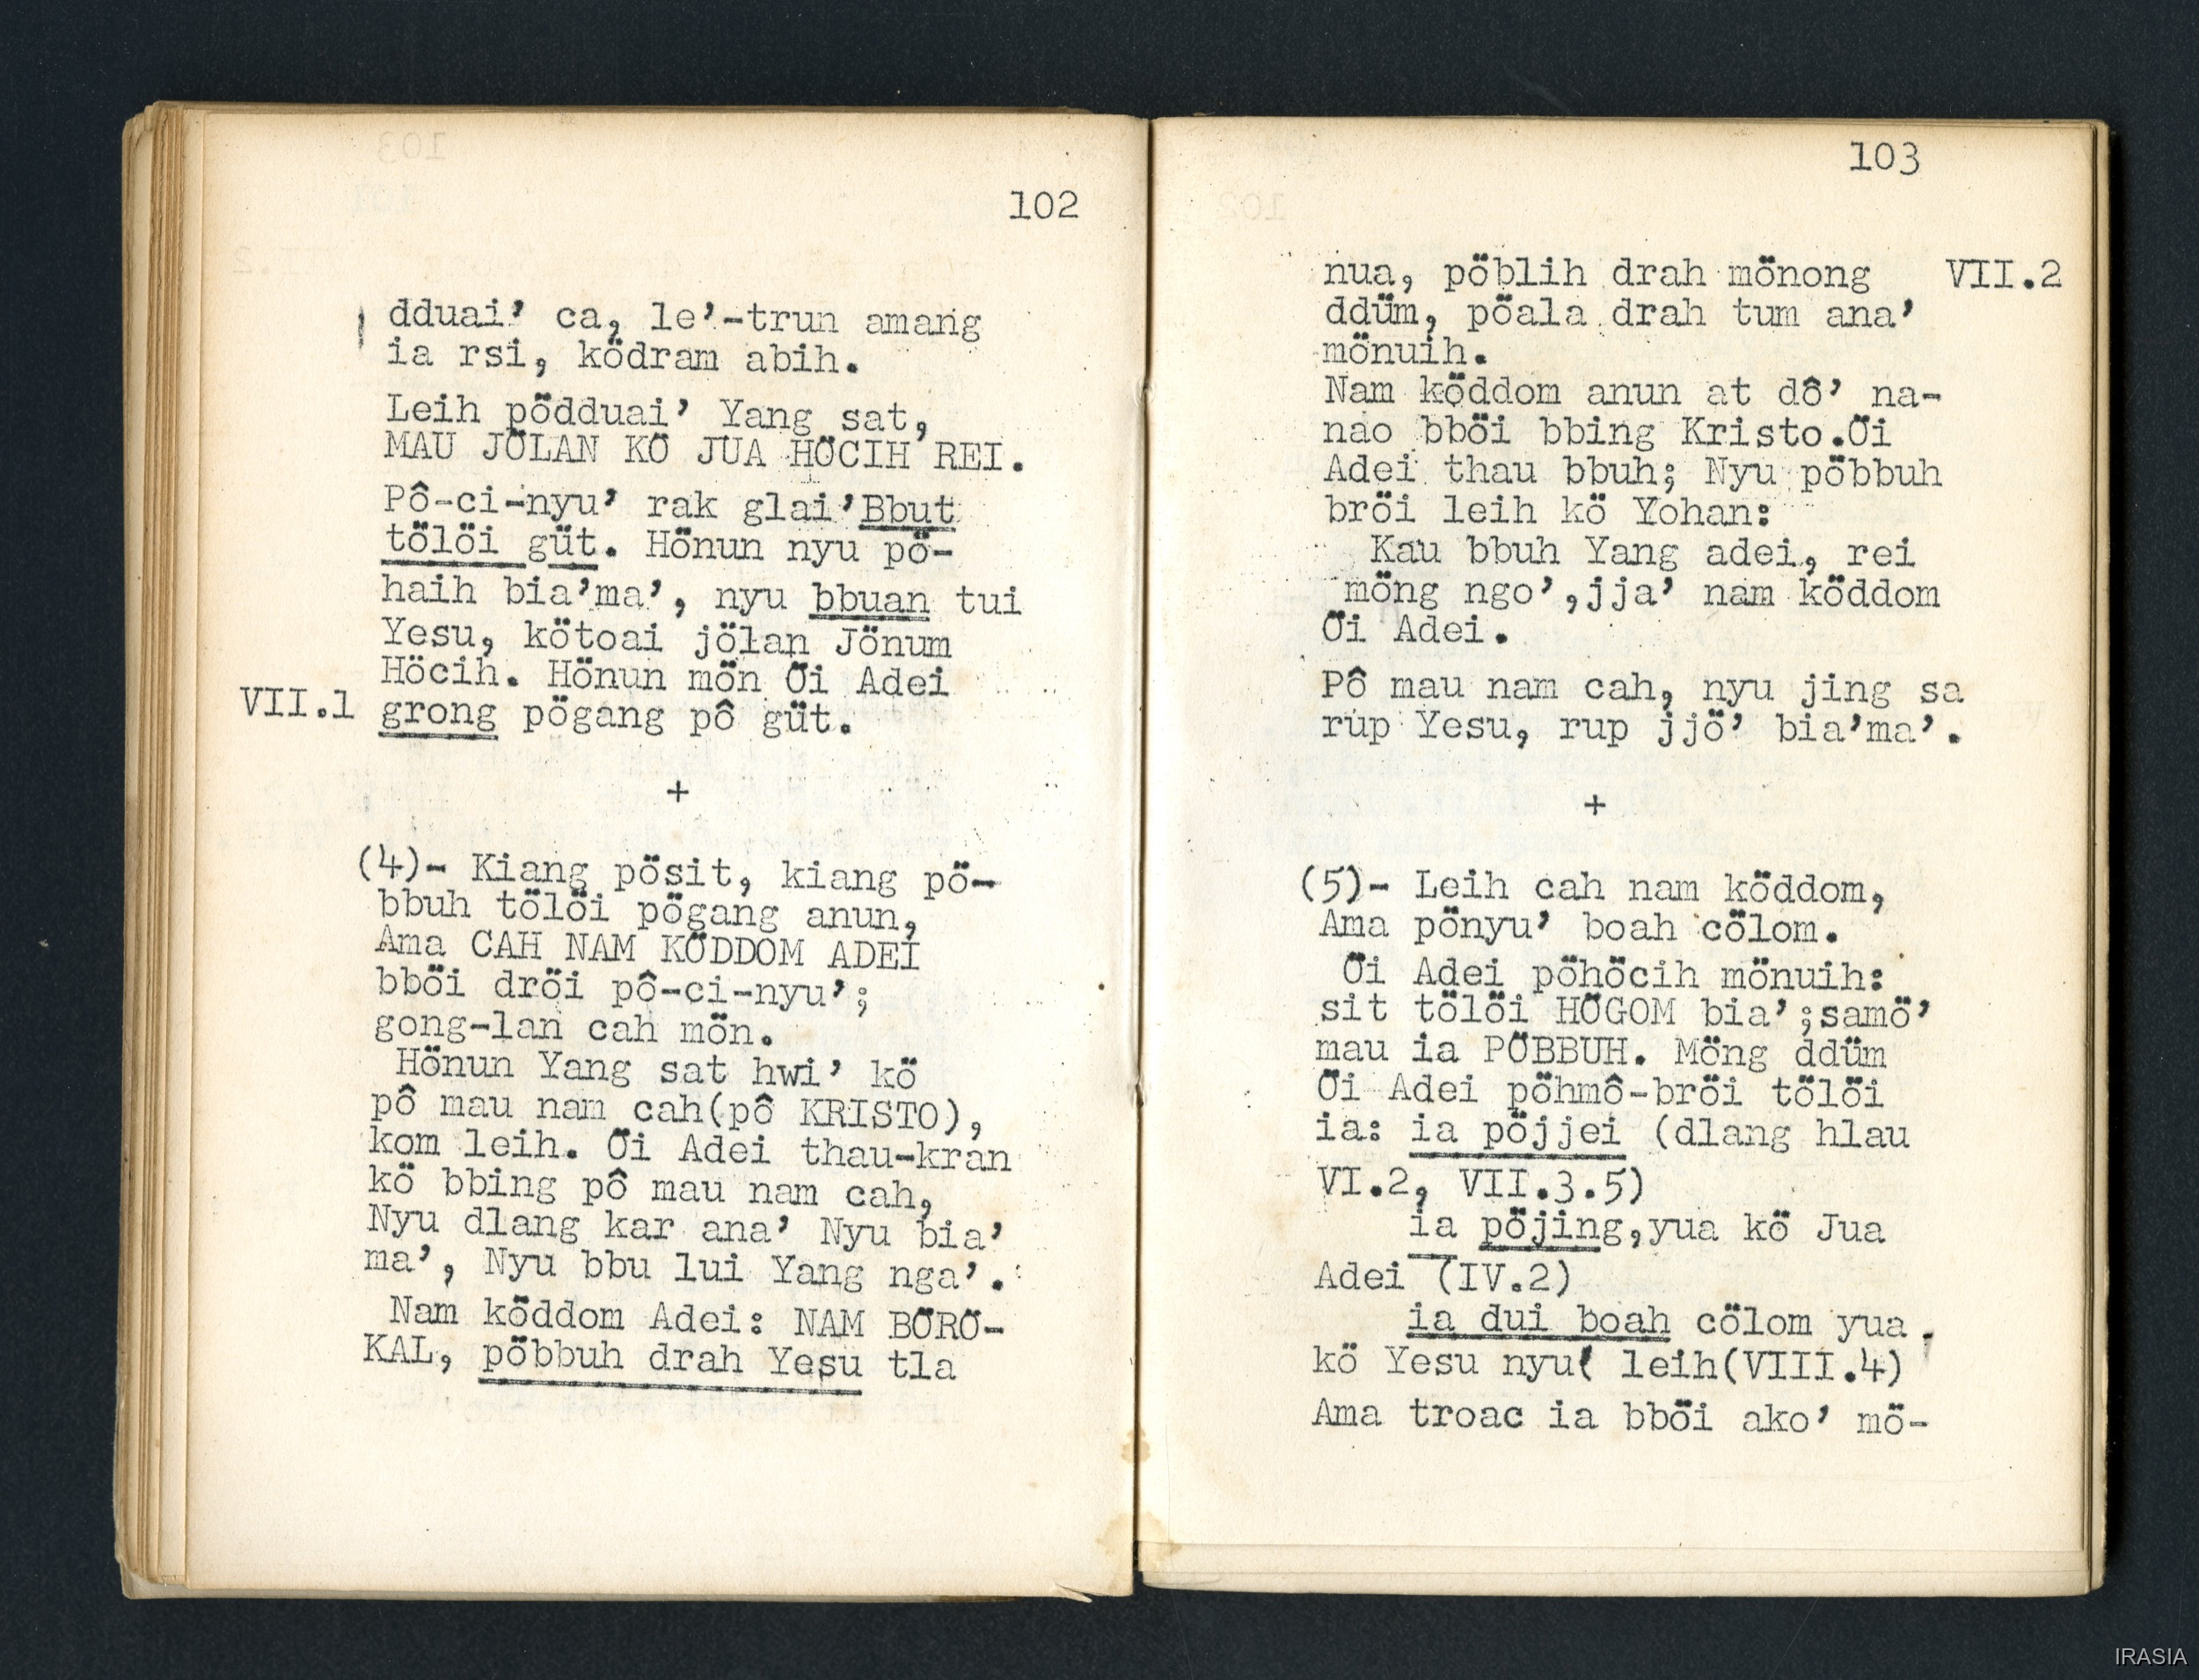 102
dduai’ ca, le’-trun amang
ia rsi, ködram abih.
Leih pödduai’ Yang sat,
MAU JÖLAN KÖ JUA HÖCIH REI.
Pô-ci-nyu’ rak glai’Bbut
tölöi güt. Hönun nyu pö-
haih bia’ma’, nyu bbuan tui
Yesu, kötoai jölan Jönum
Höcih. Hönun mön Öi Adei
VII.1 grong pögang pô güt.
+
(4)- Kiang pösit, kiang pö-
bbuh tölöi pögang anun,
Ama CAH NAM KÖDDOM ADEI
bböi dröi pô-ci-nyu’;
gong-lan cah mön.
Hönun Yang sat hwi’ kö
pô mau nam cah(pô KRISTO),
kom leih. Öi Adei thau-kran
kö bbing pô mau nam cah,
Nyu dlang kar ana’ Nyu bia’
ma’, Nyu bbu lui Yang nga’.
Nam köddom Adei: NAM BÖRÖ-
KAL, pöbbuh drah Yesu tla
103
nua, pöblih drah mönong VII.2
ddüm, pöala drah tum ana’
mönuih.
Nam köddom anun at dô’ na-
nao bböi bbing Kristo.Öi
Adei thau bbuh; Nyu pöbbuh
bröi leih kö Yohan:
Kau bbuh Yang adei, rei
möng ngo’,jja’ nam köddom
Öi Adei.
Pô mau nam cah, nyu jing sa
rup Yesu, rup jjö’ bia’ma’.
+
(5)- Leih cah nam köddom,
Ama pönyu’ boah cölom.
Öi Adei pöhöcih mönuih:
sit tölöi HÖGOM bia’;samö’
mau ia PÖBBUH. Möng ddüm
Öi Adei pöhmô-bröi tölöi
ia: ia pöjjei (dlang hlau
VI.2, VII.3.5)
ia pöjing,yua kö Jua
Adei (IV.2)
ia dui boah cölom yua
kö Yesu nyu( leih(VIII.4)
Ama troac ia bböi ako’ mö-
IRASIA